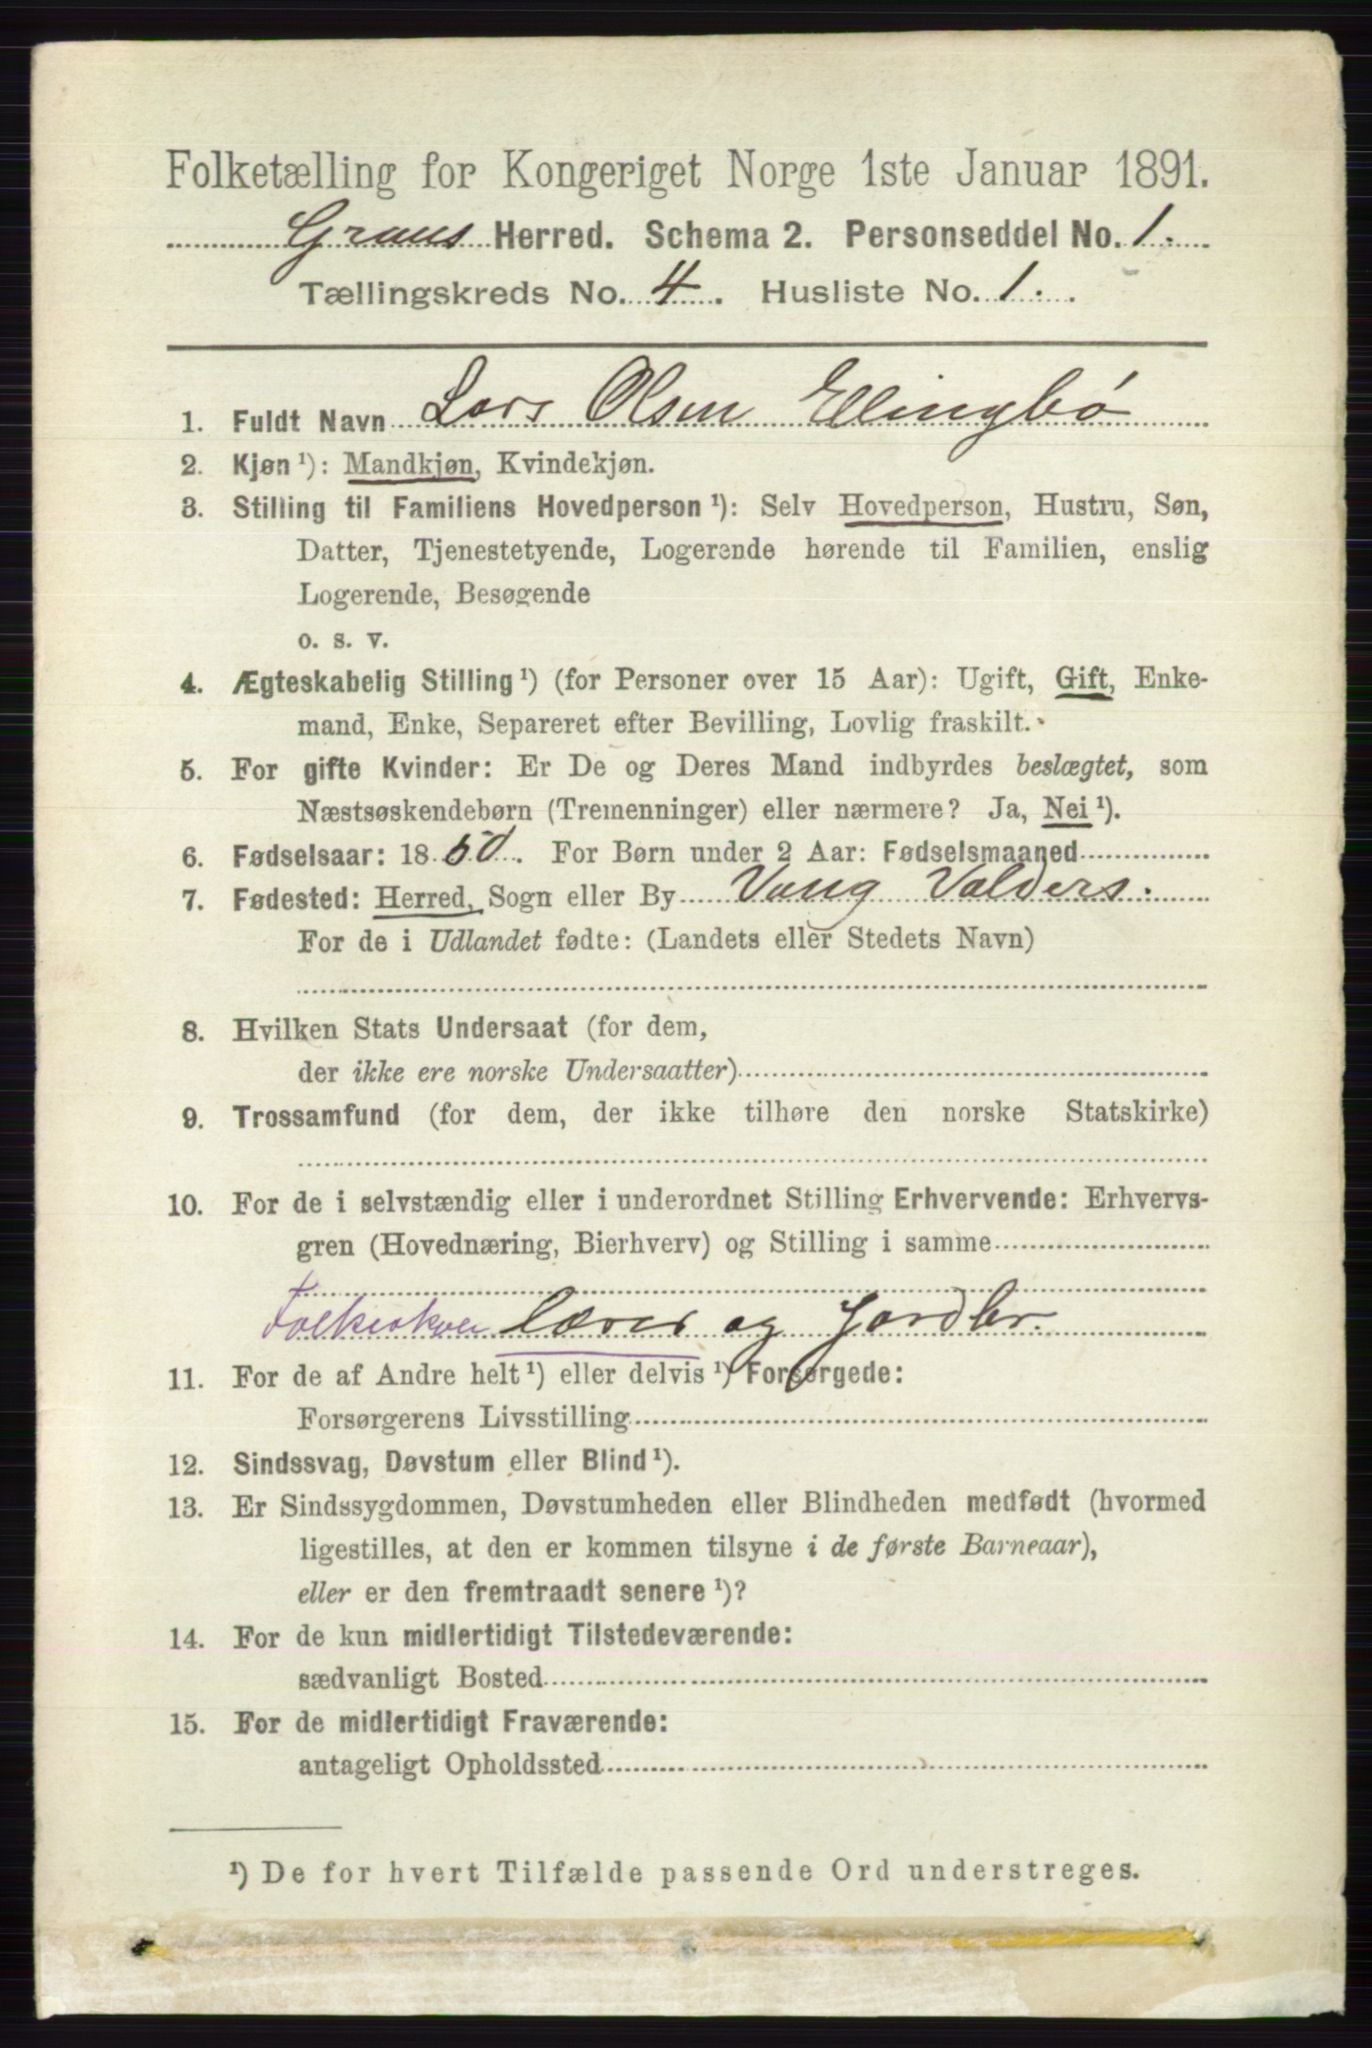 Folketælling for Kongeriget Norge 1ste Januar 1891.
Grans Herred. Schema 2. Personseddel No. 1.
Tællingskreds No. 4. Husliste No. 1.
1. Fuldt Navn Lars Olsen Ellingbø
2. Kjøn ¹): Mandkjøn, Kvindekjøn.
3. Stilling til Familiens Hovedperson ¹): Selv Hovedperson, Hustru, Søn,
Datter, Tjenestetyende, Logerende hørende til Familien, enslig
Logerende, Besøgende
o. s. v.
4. Ægteskabelig Stilling ¹) (for Personer over 15 Aar): Ugift, Gift, Enke-
mand, Enke, Separeret efter Bevilling, Lovlig fraskilt.
5. For gifte Kvinder: Er De og Deres Mand indbyrdes beslægtet, som
Næstsøskendebørn (Tremenninger) eller nærmere? Ja, Nei ¹).
6. Fødselsaar: 1850. For Børn under 2 Aar: Fødselsmaaned
7. Fødested: Herred, Sogn eller By Vang Valders.
For de i Udlandet fødte: (Landets eller Stedets Navn)
8. Hvilken Stats Undersaat (for dem,
der ikke ere norske Undersaatter)
9. Trossamfund (for dem, der ikke tilhøre den norske Statskirke)
10. For de i selvstændig eller i underordnet Stilling Erhvervende: Erhvervs-
gren (Hovednæring, Bierhverv) og Stilling i samme
Folkeskolelærer og Jordbr.
11. For de af Andre helt ¹) eller delvis ¹) Forsørgede:
Forsørgerens Livsstilling
12. Sindssvag, Døvstum eller Blind ¹).
13. Er Sindssygdommen, Døvstumheden eller Blindheden medfødt (hvormed
ligestilles, at den er kommen tilsyne i de første Barneaar),
eller er den fremtraadt senere ¹)?
14. For de kun midlertidigt Tilstedeværende:
sædvanligt Bosted
15. For de midlertidigt Fraværende:
antageligt Opholdssted
¹) De for hvert Tilfælde passende Ord understreges.